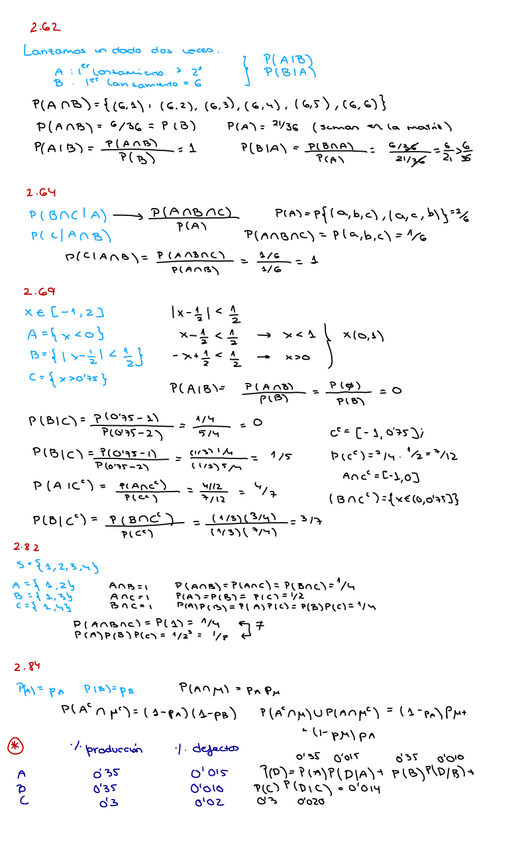 2.62
Lanzamos un dado dos veces.
A : 1er lanzamiento > 2º
B : 1er lanzamiento = 6
P(A|B)
P(B|A)
P(A∩B) = {(6,1), (6,2), (6,3), (6,4), (6,5), (6,6)}
P(A∩B) = 6/36 = P(B) P(A) = 21/36 (suman en la matriz)
P(A|B) = P(A∩B)/P(B) = 1 P(B|A) = P(B∩A)/P(A) = 6/36/21/36 = 6/21 > 6/36
2.64
P(B∩C|A) → P(A∩B∩C)/P(A) P(A) = P{(a,b,c), (a,c,b)} = 2/6
P(C|A∩B) P(A∩B∩C) = P(a,b,c) = 1/6
P(C|A∩B) = P(A∩B∩C)/P(A∩B) = 1/6/1/6 = 1
2.69
x ∈ [-1,2] |x-1/2| < 1/2
A = {x<0} x-1/2 < 1/2 → x<1
B = {|x-1/2| < 1/2} -x+1/2 < 1/2 → x>0 x(0,1)
C = {x>0'75}
P(A|B) = P(A∩B)/P(B) = P(∅)/P(B) = 0
P(B|C) = P(0'75-1)/P(0'75-2) = 1/4/5/4 = 0
P(B|C) = P(0'75-1)/P(0'75-2) = (1/3)1/4/(1/3)5/4 = 1/5
P(A|Cᶜ) = P(A∩Cᶜ)/P(Cᶜ) = 4/12/7/12 = 4/7
P(B|Cᶜ) = P(B∩Cᶜ)/P(Cᶜ) = (1/3)(3/4)/(1/3)(7/4) = 3/7
Cᶜ = [-1, 0'75];
P(Cᶜ) = 7/4 · 1/2 = 7/12
A∩Cᶜ = [-1,0]
(B∩Cᶜ) = {x∈(0,0'75]}
2.82
S = {1,2,3,4}
A = {1,2} A∩B = 1 P(A∩B) = P(A∩C) = P(B∩C) = 1/4
B = {1,3} A∩C = 1 P(A) = P(B) = P(C) = 1/2
C = {1,4} B∩C = 1 P(A)P(B) = P(A)P(C) = P(B)P(C) = 1/4
P(A∩B∩C) = P(1) = 1/4
P(A)P(B)P(C) = 1/2³ = 1/8 ≠
2.84
P(A) = pA P(B) = pB P(A∩M) = pA pM
P(Aᶜ∩Mᶜ) = (1-pA)(1-pB) P(Aᶜ∩M)∪P(A∩Mᶜ) = (1-pA)pM +
+ (1-pM)pA
* % producción % defectos
0'35 0'015 0'35 0'010
A 0'35 0'015 P(D) = P(A)P(D|A) + P(B)P(D/B) +
B 0'35 0'010 P(C)P(D|C) = 0'014
C 0'3 0'02 0'3 0'020